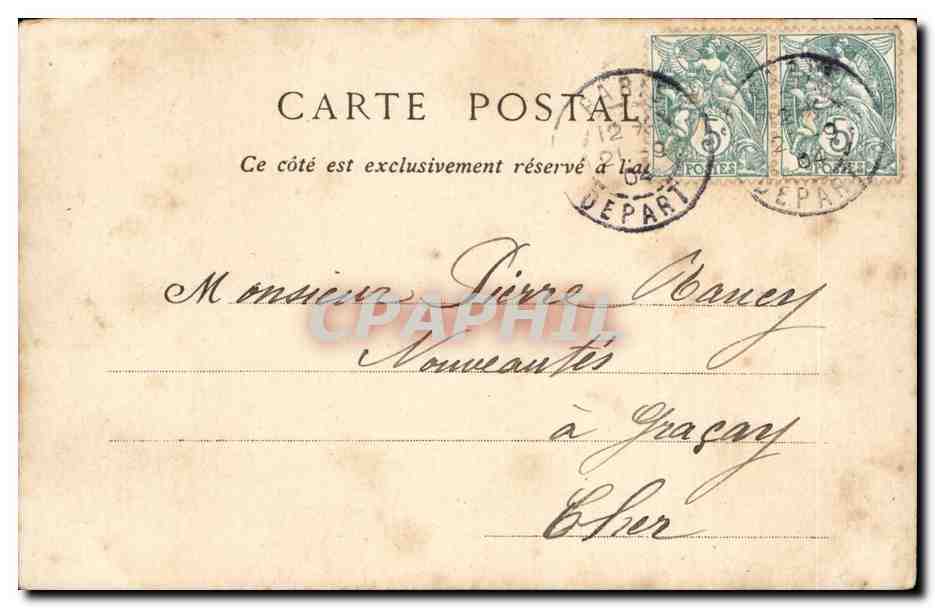 CARTE POSTAL
Ce côté est exclusivement réservé à l'a
5c
POSTES
5c
POSTES
12
21 9
04
DEPART
9
04
DEPART
Monsieur Pierre Rancy
CPAPHIL
Nouveautés
à Graçay
Cher